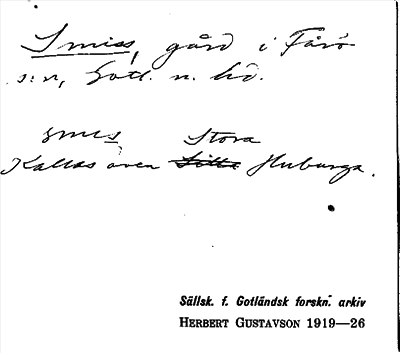 Smiss, gård i Fårö
s:n, Gotl. n. hd.
smis Stora
Kallas även Litta Huburga.
Sällsk. f. Gotländsk forskn. arkiv
HERBERT GUSTAVSON 1919—26